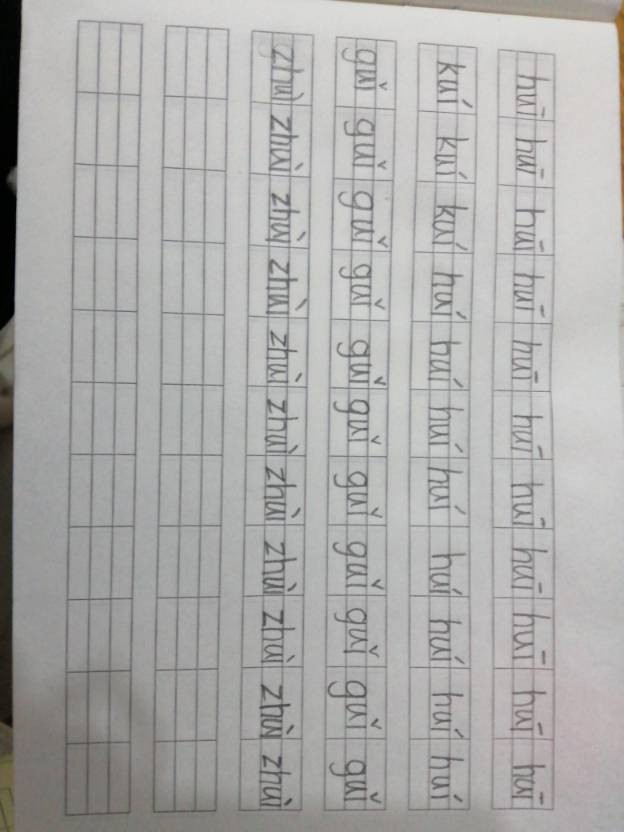 huī huī huī huī huī huī huī huī huī huī huī
kuí kuí kuí huí huí huí huí huí huí huí huí
guǐ guǐ guǐ guǐ guǐ guǐ guǐ guǐ guǐ guǐ guǐ
zhuì zhuì zhuì zhuì zhuì zhuì zhuì zhuì zhuì zhuì zhuì